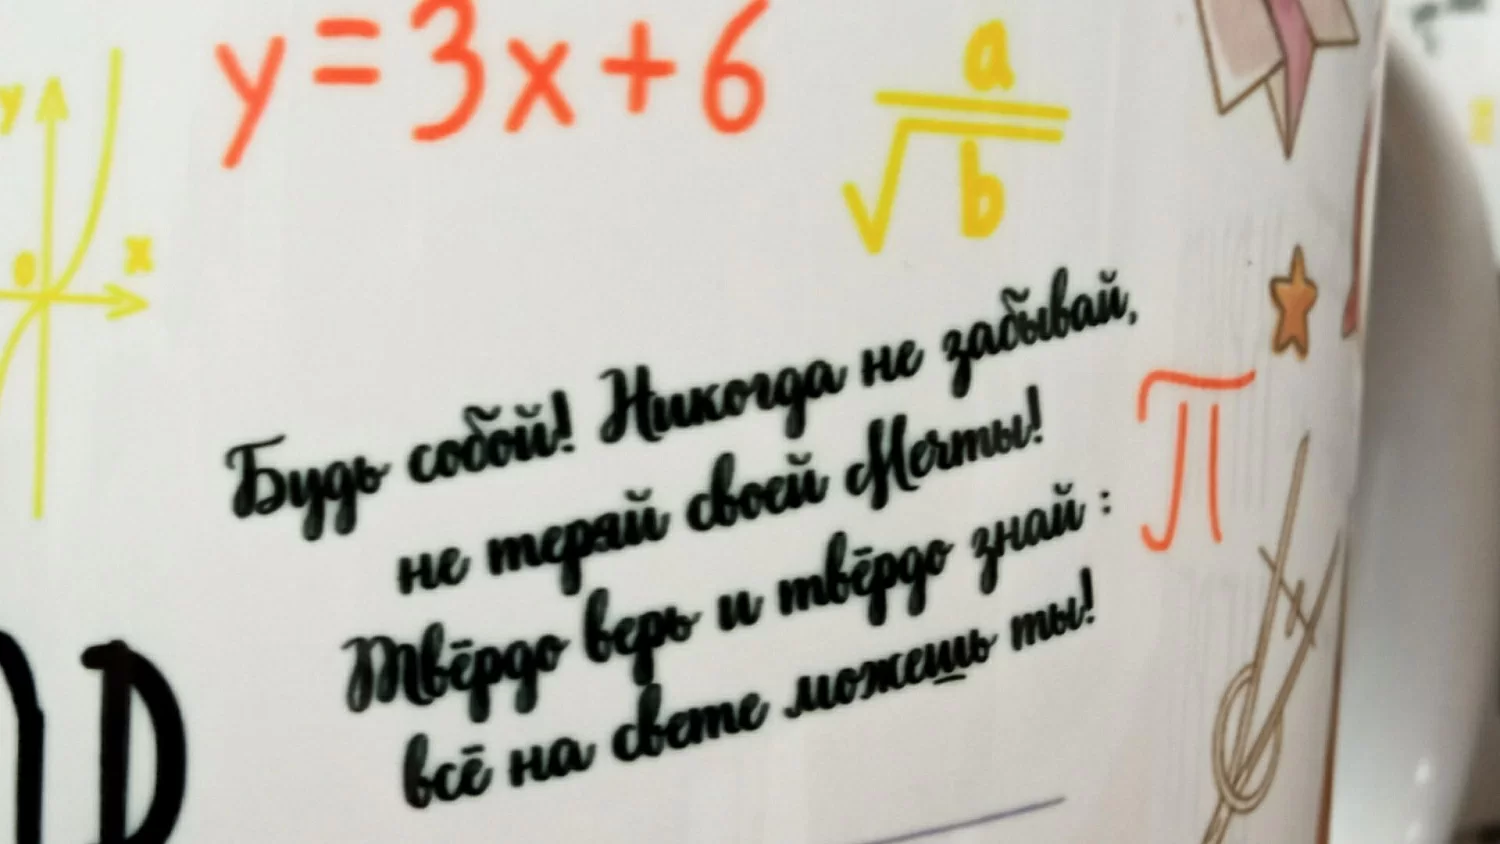 y=3x+6
a
√b
y
0
x
Будь собой! Никогда не забывай,
не теряй своей Мечты!
π
Твёрдо верь и твёрдо знай :
всё на свете можешь ты!